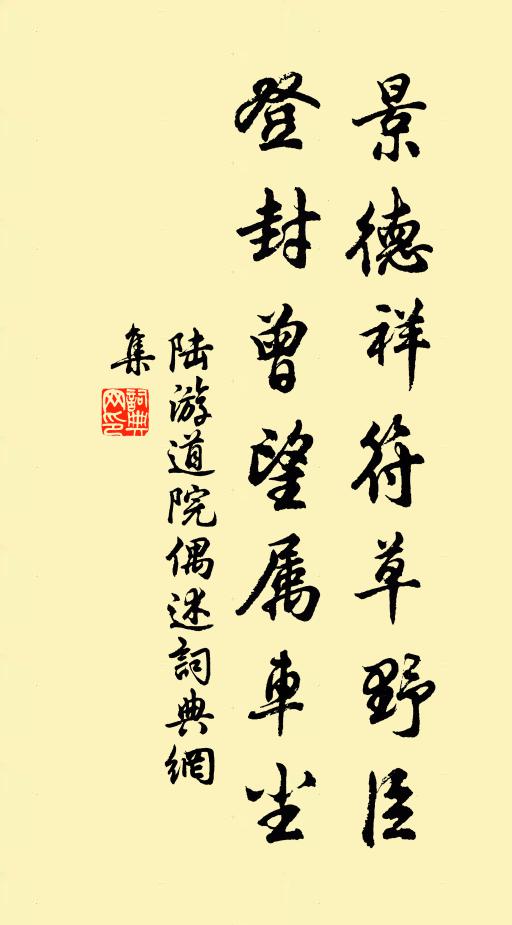 景德祥符草野臣
登封曾望属車尘
陆游道院偶述詞典網
集
詞典
网印